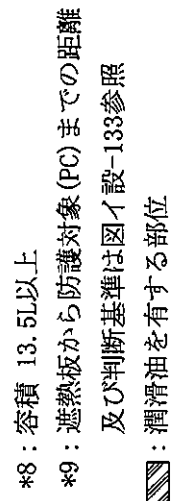 *8：容積 13.5L以上
*9：遮熱板から防護対象(PC)までの距離
及び判断基準は図イ設-133参照
：潤滑油を有する部位